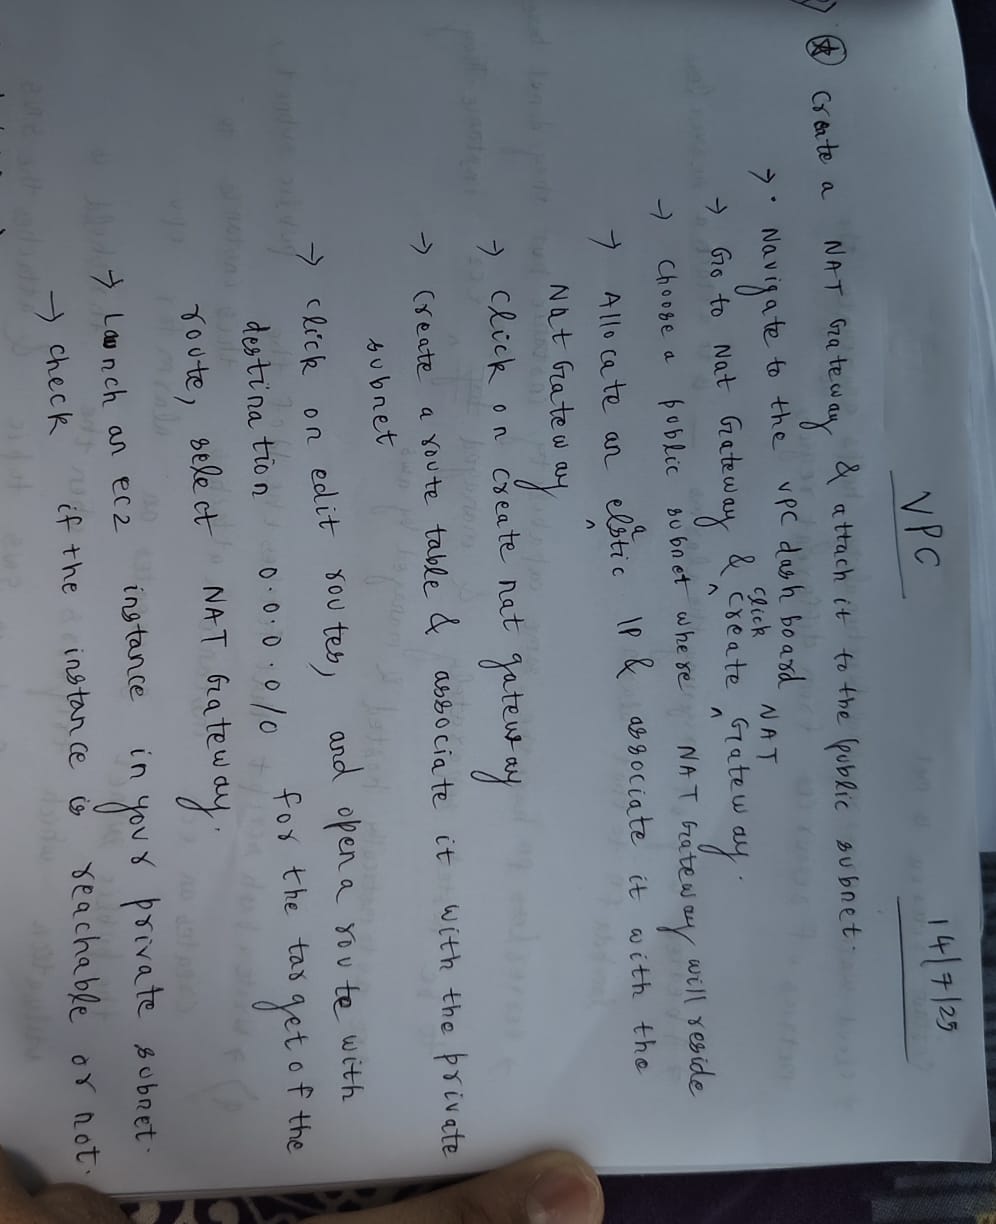 VPC
14/7/25
* Create a NAT Gateway & attach it to the public subnet.
→ • Navigate to the VPC dash board
→ Go to Nat Gateway & click create NAT Gateway.
→ choose a public subnet where NAT Gateway will reside
→ Allocate an elastic IP & associate it with the
Nat Gateway
→ click on create nat gateway
→ create a route table & associate it with the private
subnet
→ click on edit routes, and open a route with
destination 0.0.0.0/0 for the target of the
route, select NAT Gateway.
→ Launch an ec2 instance in your private subnet.
→ check if the instance is reachable or not.